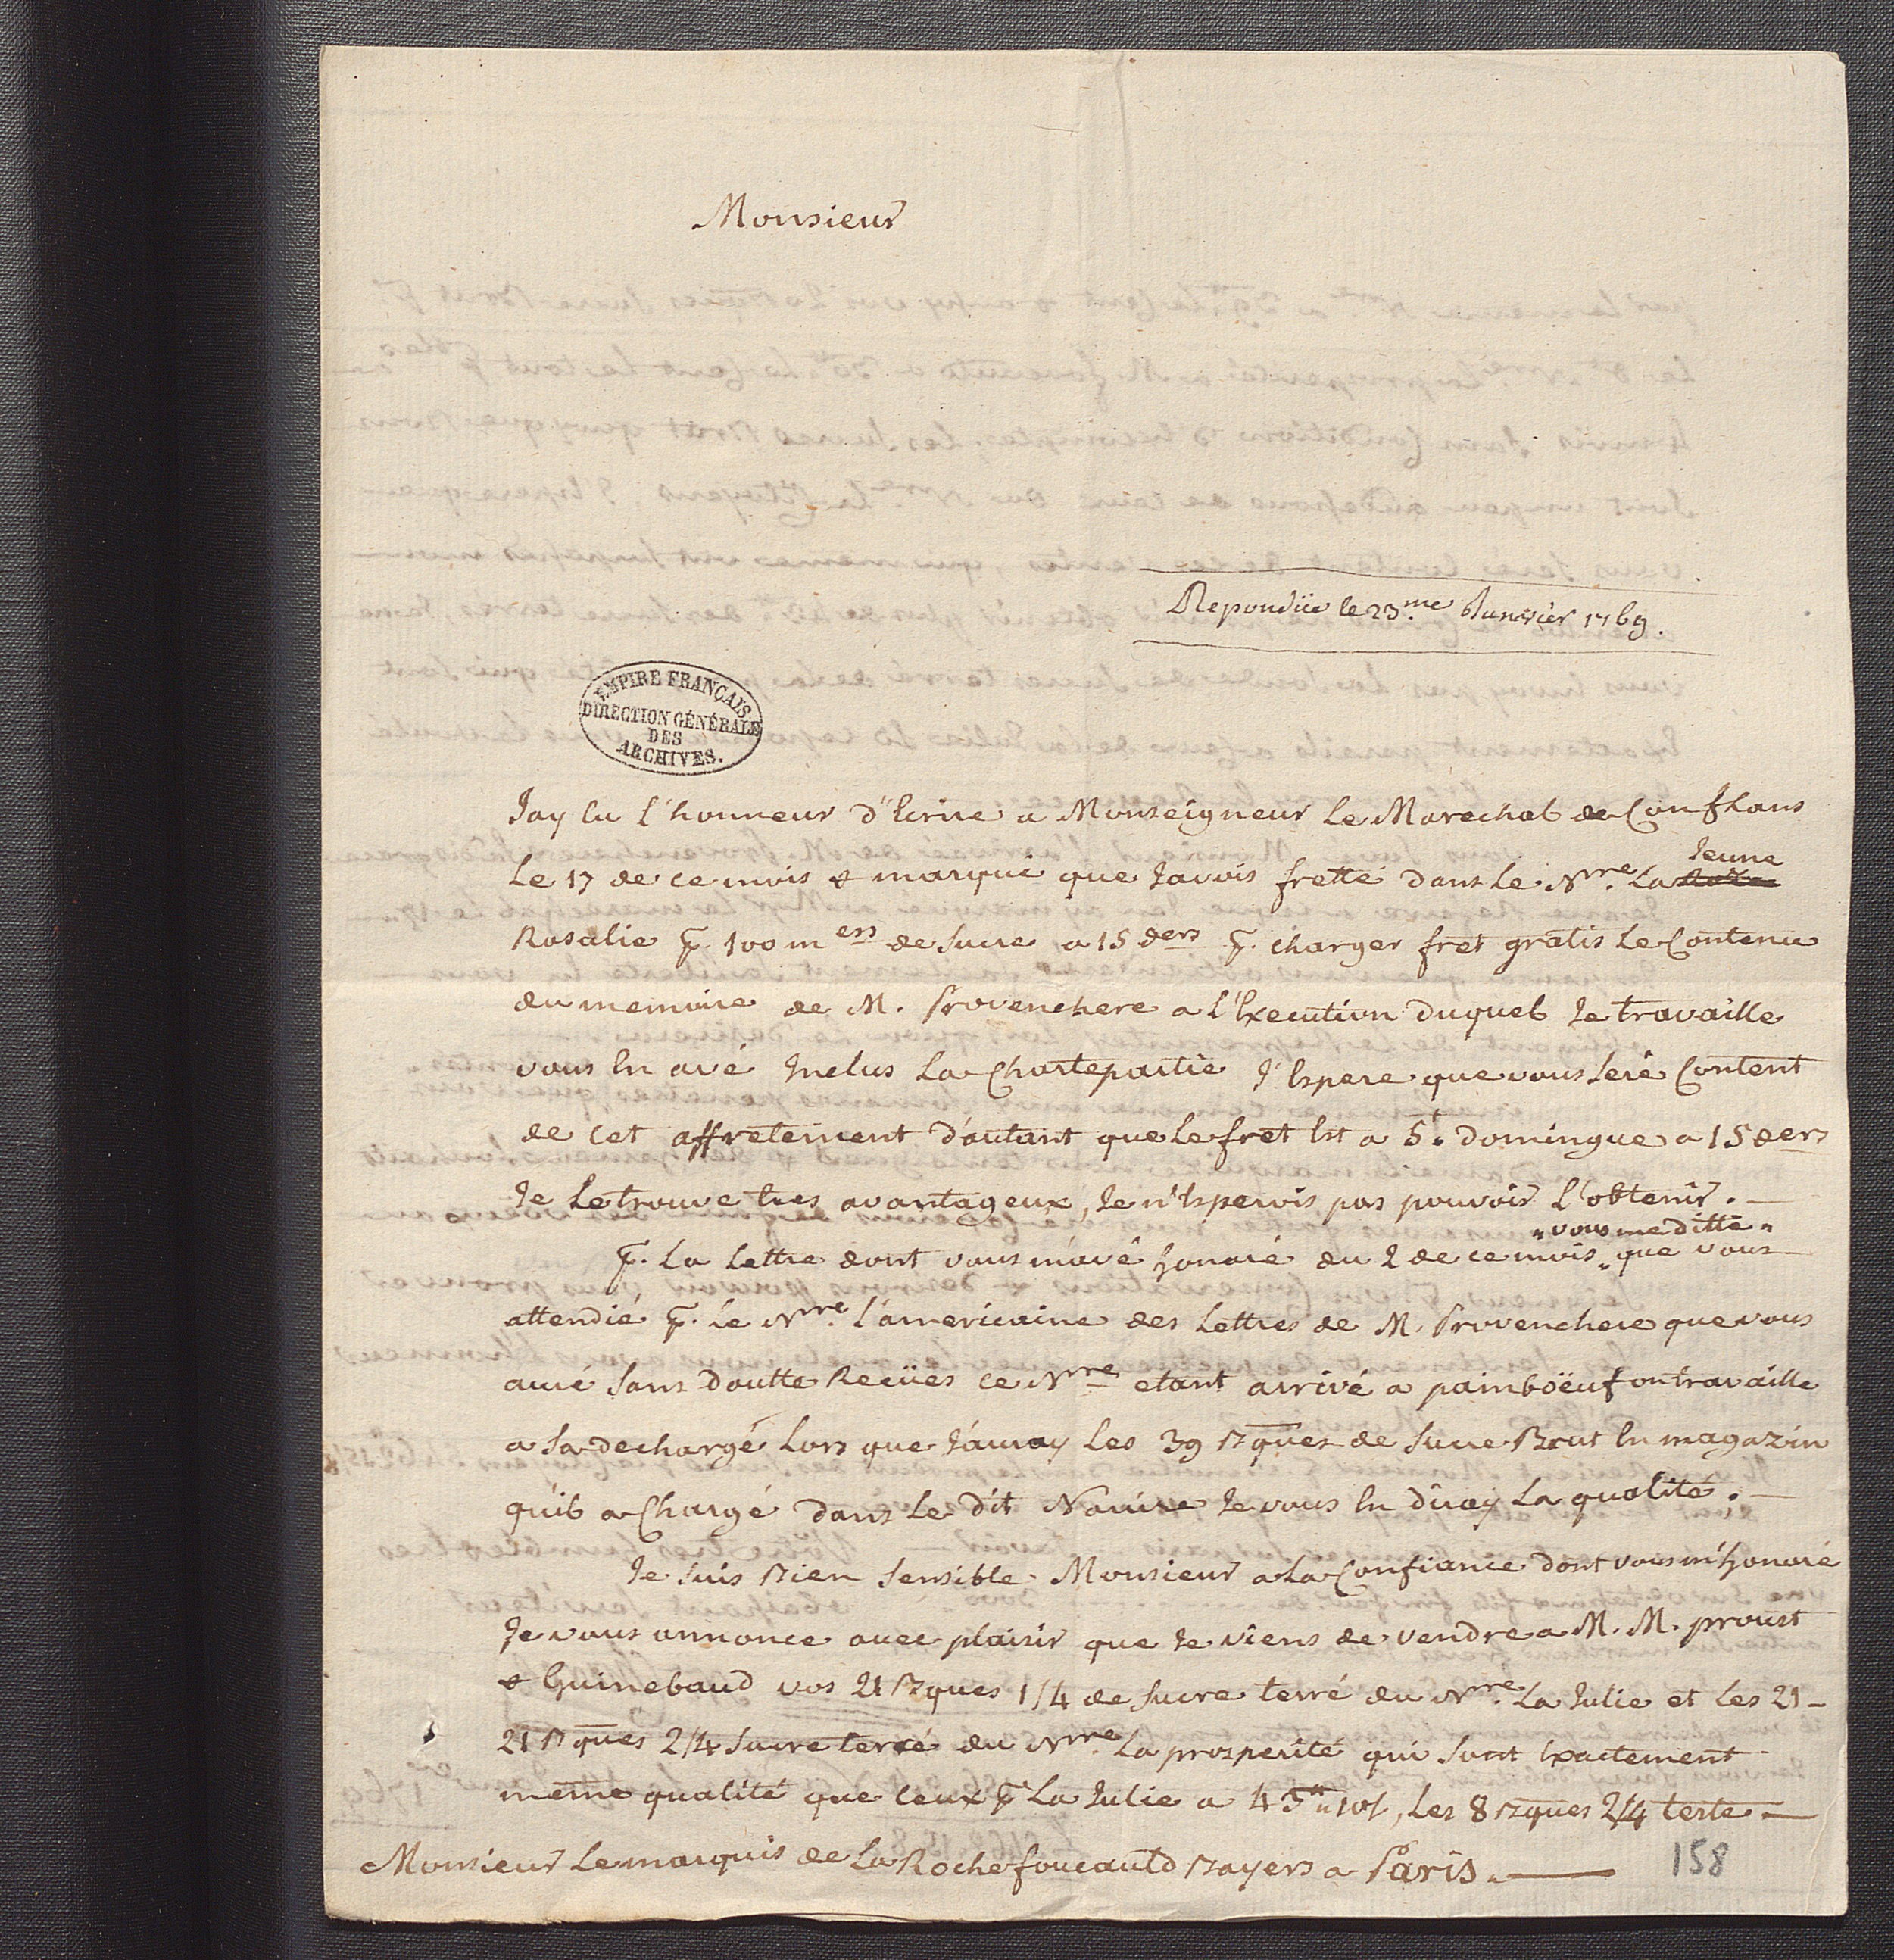 Monsieur
Repondüe le 23.me Janvier 1769.
EMPIRE FRANÇAIS
DIRECTION GÉNÉRALE
DES
ARCHIVES.
Jay Eu l'honneur d'Ecrire a Monseigneur Le Marechal de Conflans
Le 17 de ce mois & marqué que Javois fretté dans Le Nre. La Jeune
Rosalie p. 100 mers de Sucre a 15 ders p. charger fret gratis Le Contenu
du memoire de M. Provenchere a l'Execution duquel Je travaille
vous En avé Inclus La Chartepartie J'Espere que vous Seré Content
de Cet affretement d'autant que Le fret Est a St. Domingue a 15 ders
Je Le trouve tres avantageux, Je n'Esperois pas pouvoir l'obtenir. —
"vous me ditte"
p. La Lettre dont vous m'avé honoré du 2 de ce mois "que vous
attendié p. Le Nre. l'americaine des Lettres de M. Provenchere que vous
auré Sans doutte Reçües ce Nre etant arrivé a paimböeuf on travaille
a Sa decharge Lors que J'auray Les 39 Bques de Sucre Brut En magazin
qu'il a Chargé dans Le dit Navire Je vous En diray La qualité. —
Je Suis Bien Sensible Monsieur a La Confiance dont vous m'honoré
Je vous annonce avec plaisir que Je viens de vendre a M. M. proust
& Guinebaud vos 21 Bques 1/4 de Sucre terré du Nre. La Julie et Les 21 —
21 Bques 2/4 Sucre terré du Nre. La prosperité qui Sont Exactement
même qualité que Ceux p La Julie a 45tt 10s, Les 8 Bques 2/4 teste —
Monsieur Le marquis de La Rochefoucauld Bayers a Paris. —
158